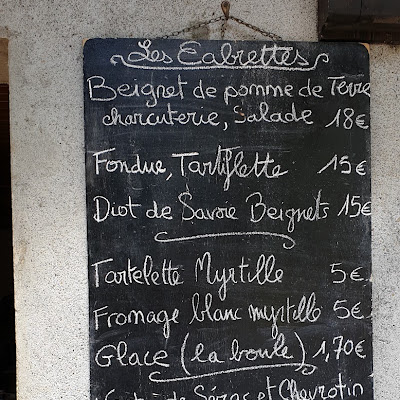 Les Cabrettes
Beignet de pomme de Terre
charcuterie, Salade 18€
Fondue, Tartiflette 15€
Diot de Savoie Beignets 15€
Tartelette Myrtille 5€
Fromage blanc myrtille 5€
Glace (la boule) 1,70€
de Séras et Chevrotin